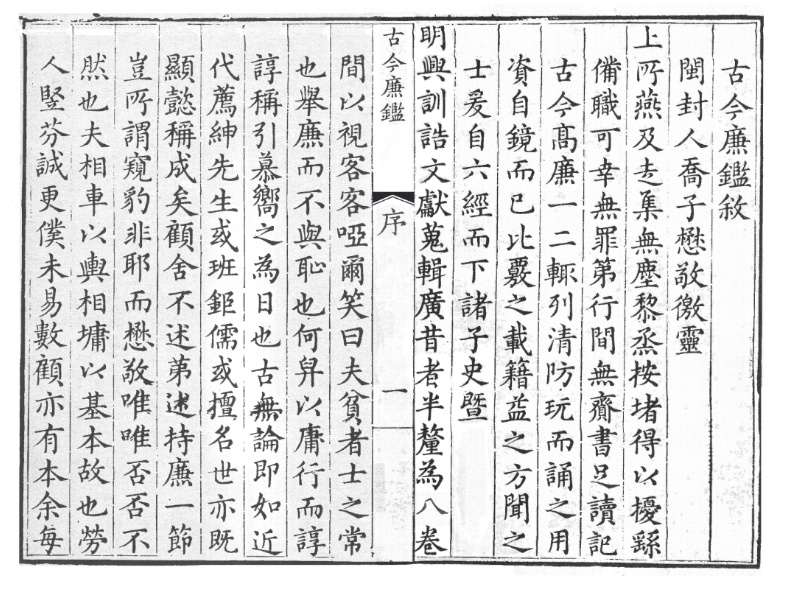 古今廉鑑敘
閩封人喬子懋敬徼靈
上所燕及走集無塵黎烝按堵得以擾繇
備職可幸無罪第行間無齎書足讀記
古今高廉一二輒列清防玩而誦之用
資自鏡而已比覈之載籍益之方聞之
士爰自六經而下諸子史暨
明興訓誥文獻蒐輯廣昔者半釐為八卷
古今廉鑑
序
一
間以視客客啞爾笑曰夫貧者士之常
也舉廉而不與恥也何舁以庸行而諄
諄稱引慕嚮之為日也古無論即如近
代薦紳先生或班鉅儒或擅名世亦既
顯懿稱成矣顧舍不述第述持廉一節
豈所謂窺豹非耶而懋敬唯唯否否不
然也夫相車以輿相墉以基本故也勞
人豎芬誠更僕未易數顧亦有本余每